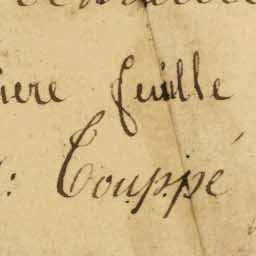 iere feuille
: Couppé